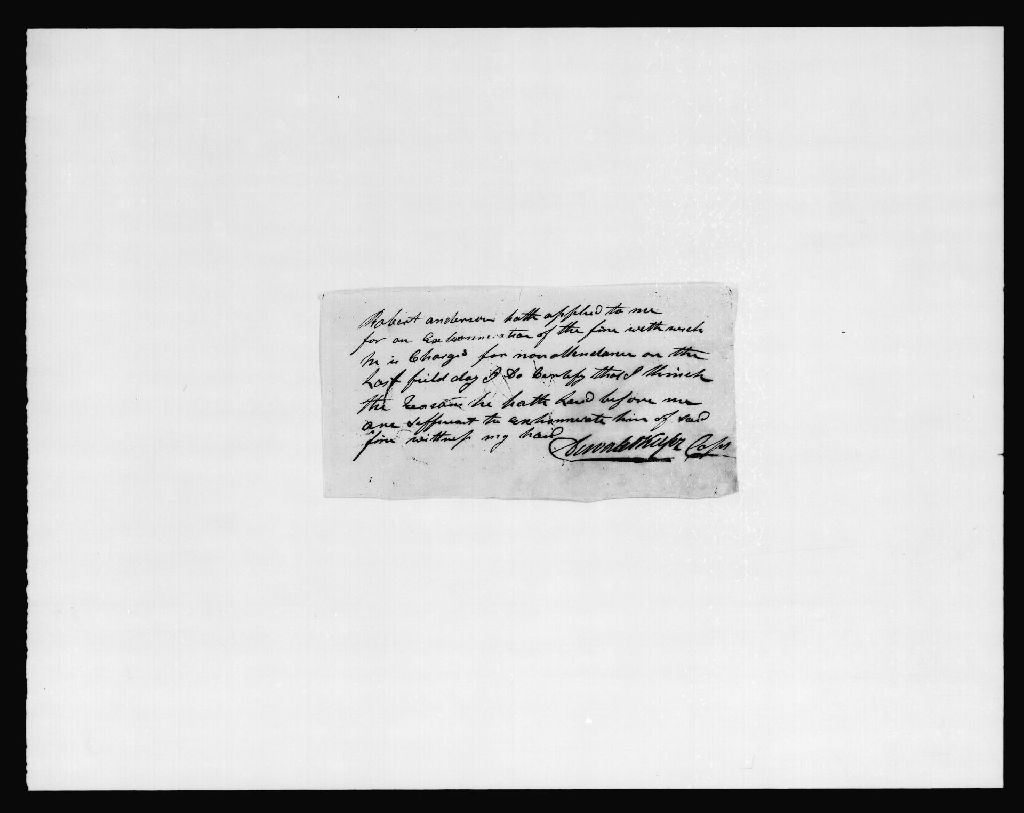 Robert anderson hath applied to me
for an Exhonneration of the fine with wich
he is Charged for non attendance on the
Last field day I Do Certify that I think
the Reasons he hath Laid before me
are Suffecient to exhonnerate him of said
fine witness my hand
Capt